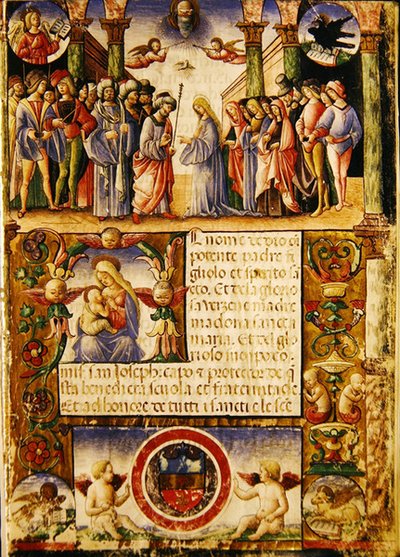 nome de dio
potente padre fi
gliolo et spirito sa
cto. Et dela glorio
sa verzene madre
madona sancta
maria. Et del glo
rioso
san Joseph. capo et protector de q
sta benedeta scuola et fraternita de
Et ad honore de tutti i sancti e le sce